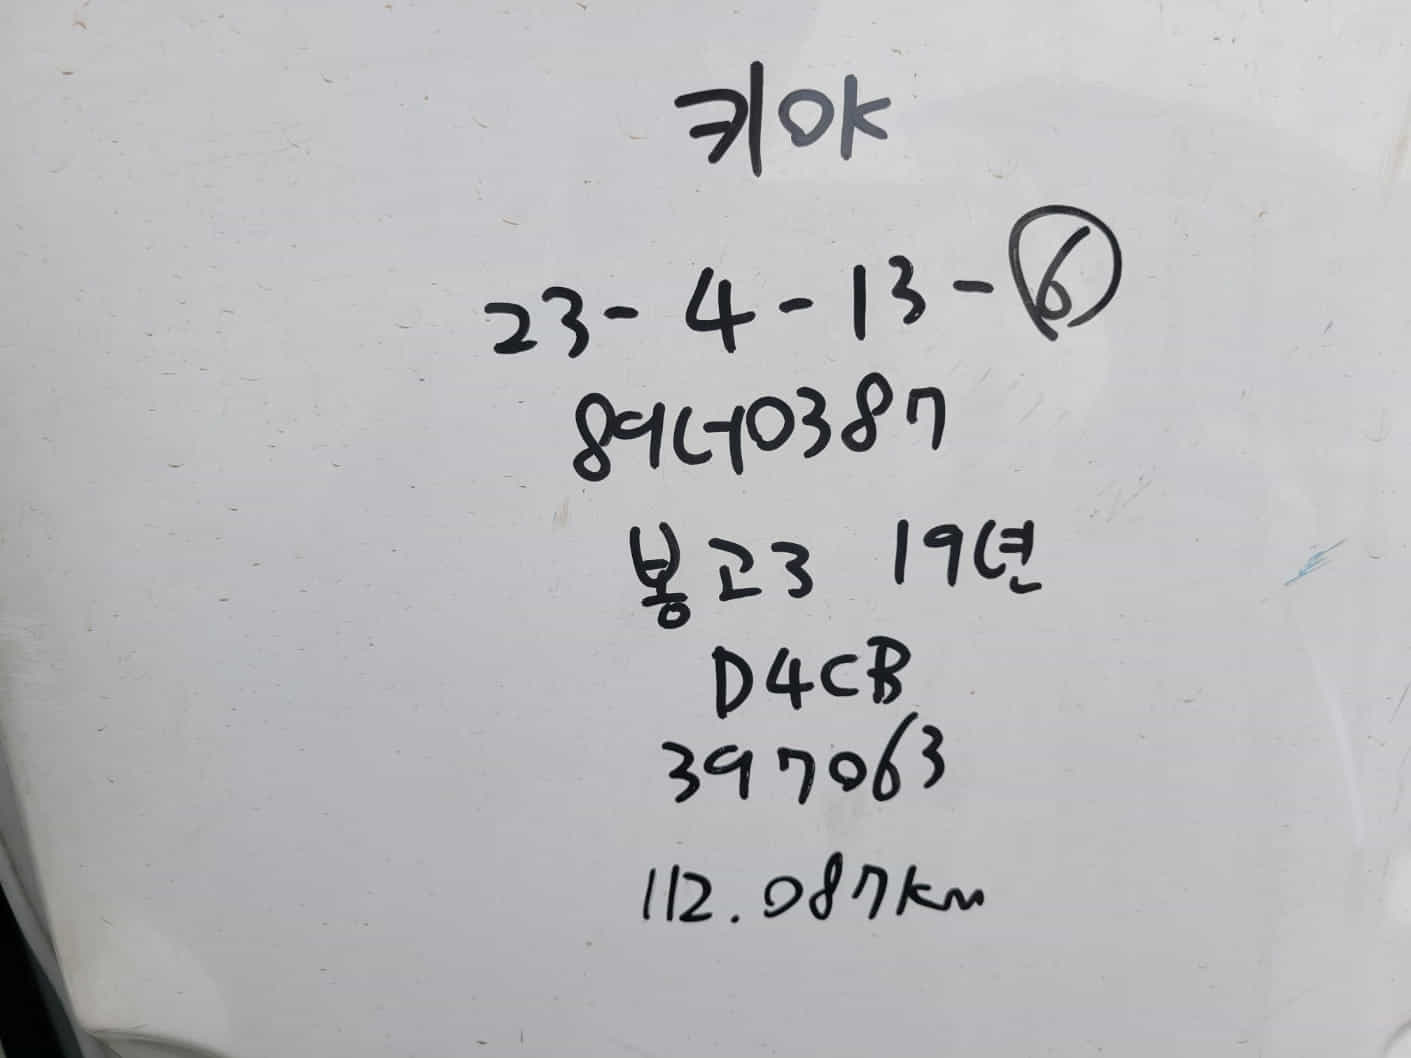 키OK
23-4-13-⑥
89너0387
봉고3 19년
D4CB
397063
112.087km